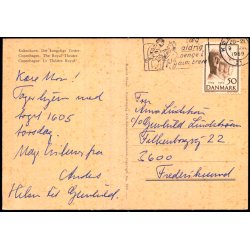 København. Det kongelige Teater
Copenhagen. The Royal Theater
Copenhague. Le Théâtre Royal
læg
aldrig
penge i
brev
50
DANMARK
Kære Mor!
Tager hjem med
toget 1605
torsdag.
Mange hilsner fra
Anders
Hilsen til Gunhild.
Fru
Anna Lindstrøm
c/o Gunhild Lindstrøm
Falkenborgvej 22
3600
Frederikssund